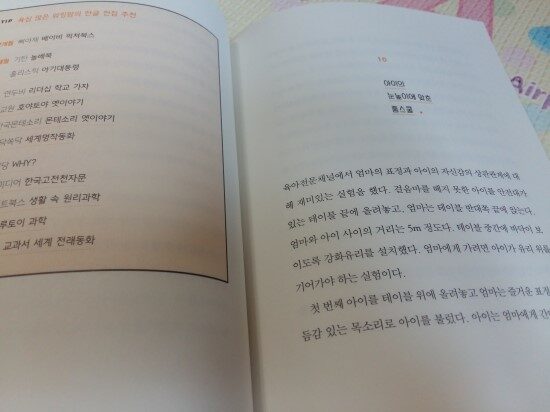 TIP 욕심 많은 워킹맘의 한글 전집 추천
베이비 픽처북스
기탄 놀배북
홀리스틱 아기대통령
리더십 학교 가자
호야토야 옛이야기
몬테소리 옛이야기
세계명작동화
WHY?
한국고전천자문
생활 속 원리과학
과학
교과서 세계 전래동화
10
아이의
눈높이에 맞춘
홈스쿨
육아전문채널에서 엄마의 표정과 아이의 자신감의 상관관계에 대
해 재미있는 실험을 했다. 걸음마를 떼지 못한 아이를 안전대가
있는 테이블 끝에 올려놓고, 엄마는 테이블 반대쪽 끝에 앉는다.
엄마와 아이 사이의 거리는 5m 정도다. 테이블 중간에 바닥이 보
이도록 강화유리를 설치했다. 엄마에게 가려면 아이가 유리 위를
기어가야 하는 실험이다.
첫 번째 아이를 테이블 위에 올려놓고 엄마는 즐거운 표정
듬감 있는 목소리로 아이를 불렀다. 아이는 엄마에게
Airp